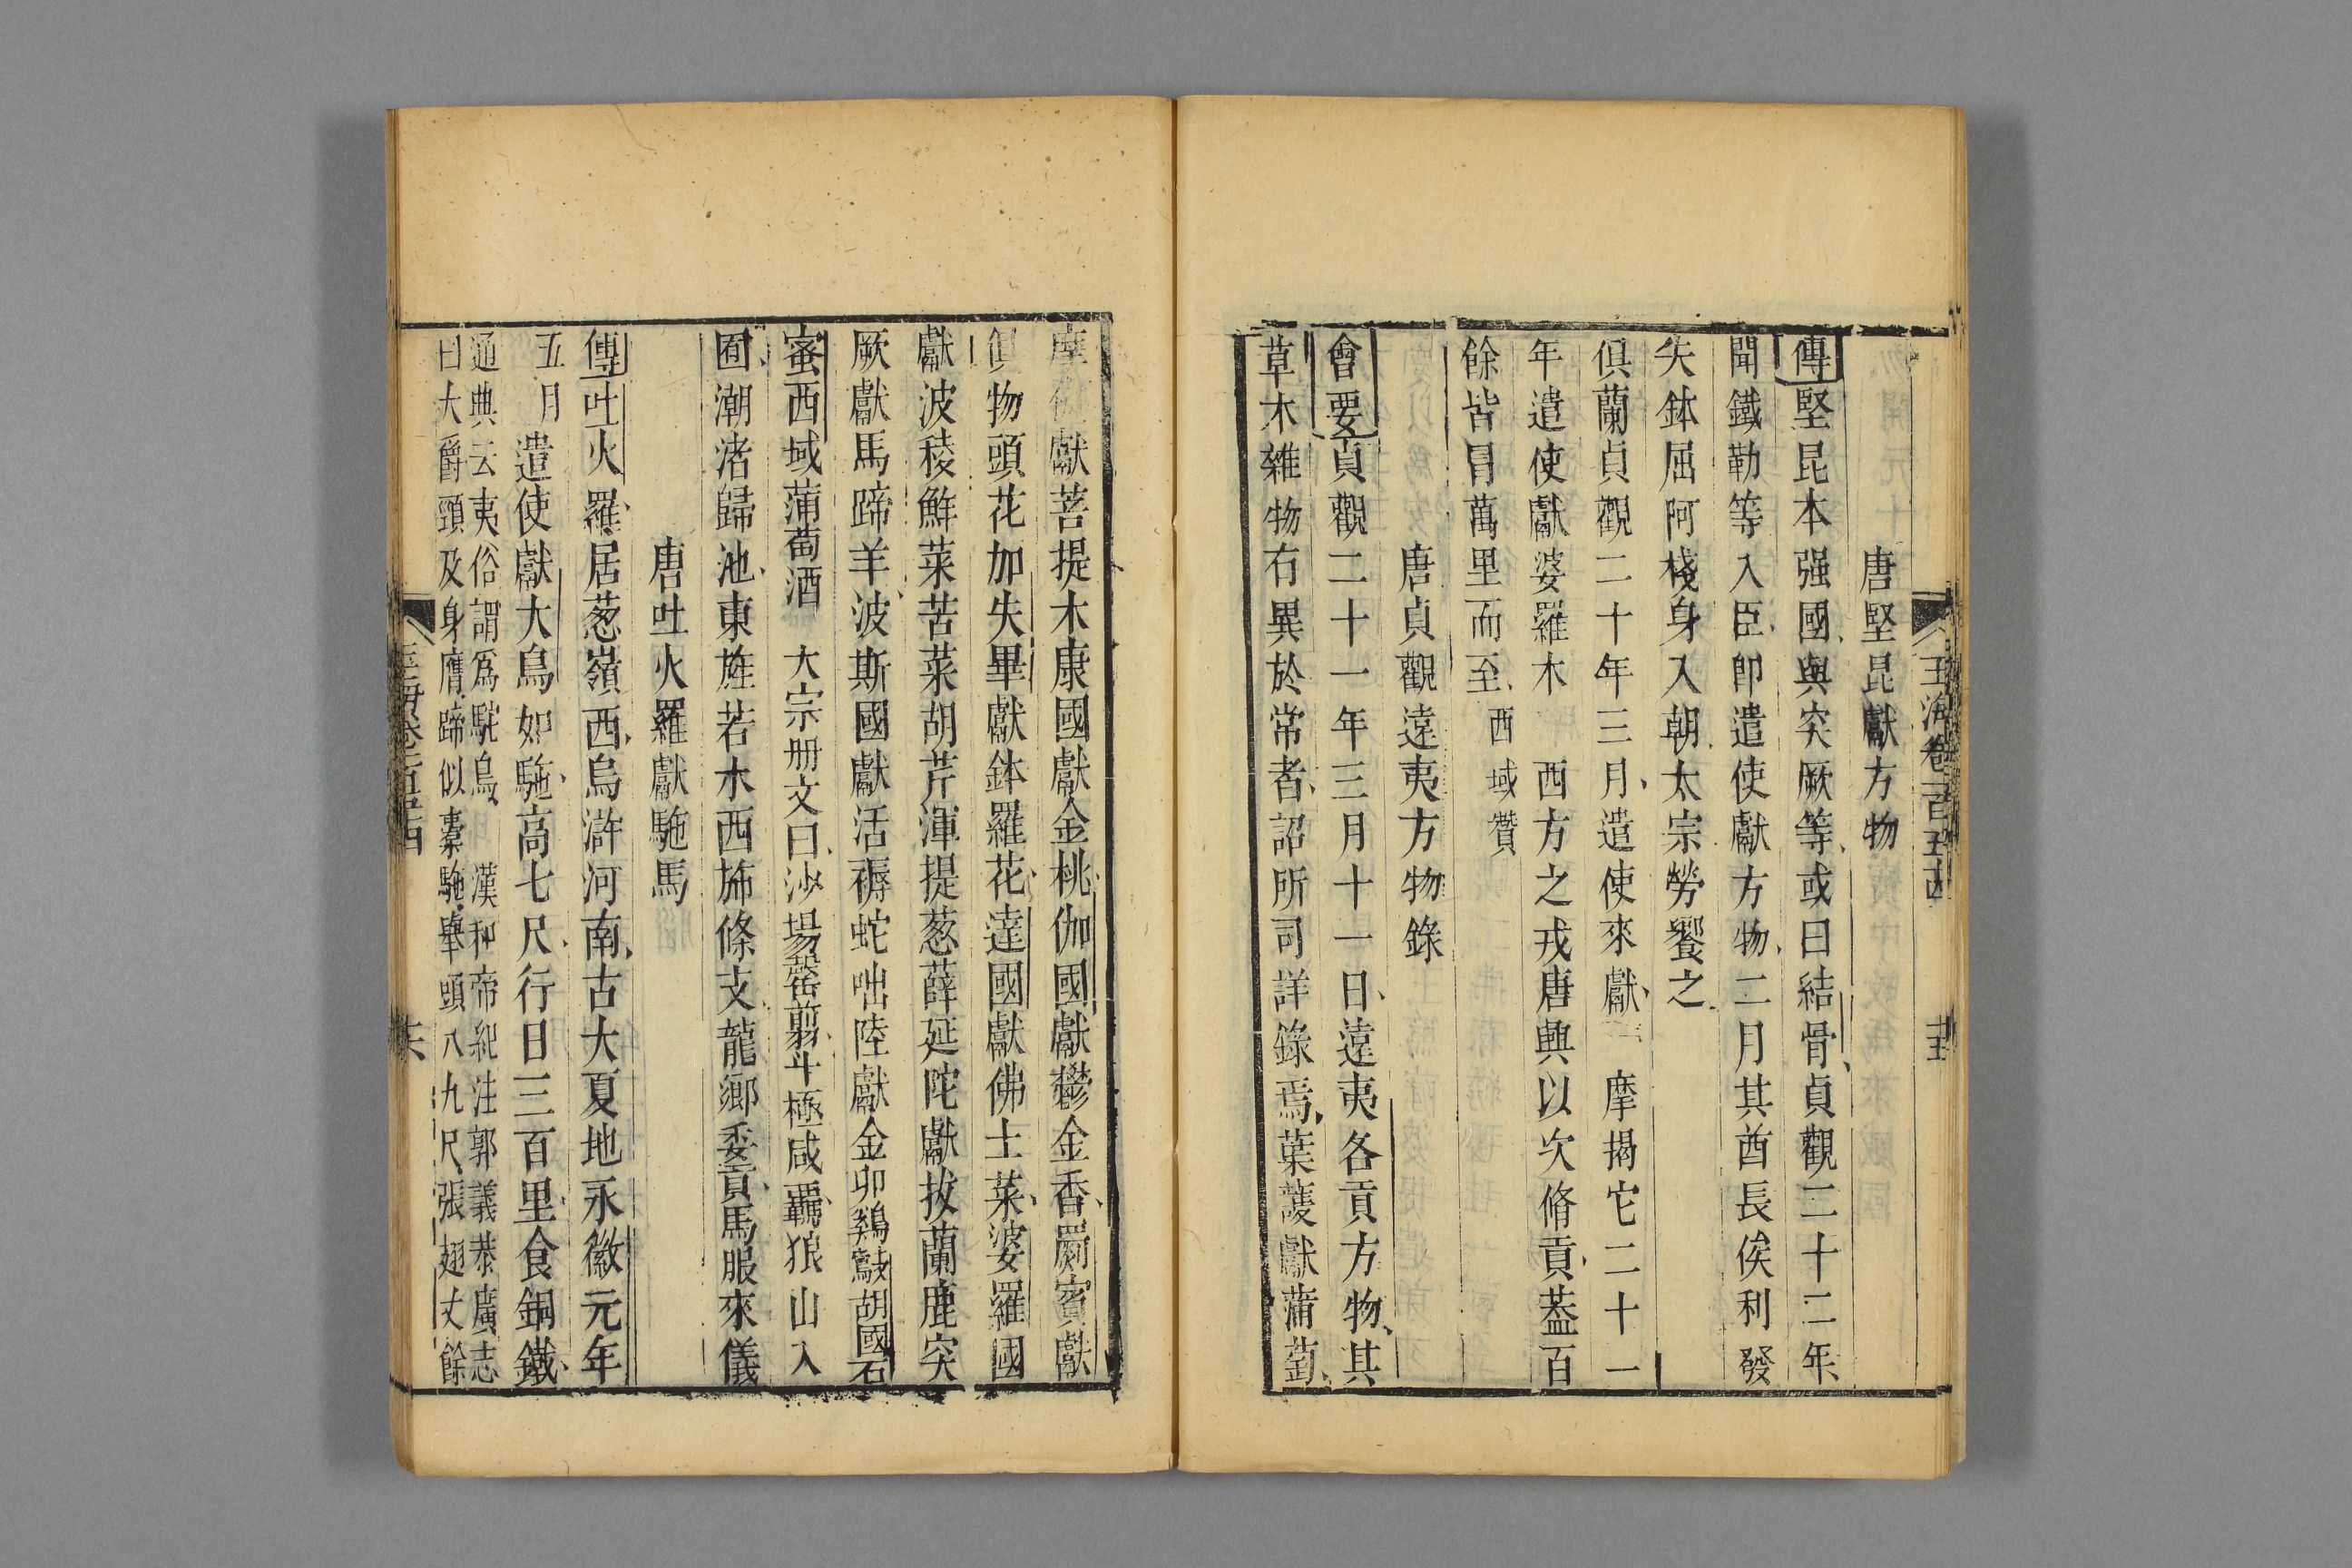 玉海卷一百五十四
唐堅昆獻方物
傳堅昆本强國與突厥等或曰結骨貞觀二十二年
聞鐵勒等入臣卽遣使獻方物二月其酋長俟利發
失鉢屈阿棧身入朝太宗勞饗之
俱蘭貞觀二十年三月遣使來獻 摩揭它二十一
年遣使獻婆羅木 西方之戎唐興以次脩貢葢百
餘皆冒萬里而至西域贊
唐貞觀遠夷方物錄
會要貞觀二十一年三月十一日遠夷各貢方物其
草木雜物有異於常者詔所司詳錄焉葉護獻蒲萄
獻菩提木康國獻金桃伽國獻鬱金香罽賓獻
俱物頭花加失畢獻鉢羅花達國獻佛土菜婆羅國
獻波稜鮮菜苦菜胡芹渾提葱薛延陀獻拔蘭鹿突
厥獻馬蹄羊波斯國獻活褥蛇咄陸獻金卵鷄殿胡國石
蜜西域蒲萄酒 大宗冊文曰沙場罄翦斗極咸覊狼山入
囿潮渚歸池東旌若木西旆條支龍鄉委貢馬服來儀
唐吐火羅獻駞馬
傳吐火羅居葱嶺西烏滸河南古大夏地永徽元年
五月遣使獻大鳥如駞高七尺行日三百里食銅鐵
通典云夷俗謂爲駝鳥 漢和帝紀注郭義恭廣志
曰大爵頸及身膺蹄似橐駞舉頭八九尺張翅丈餘